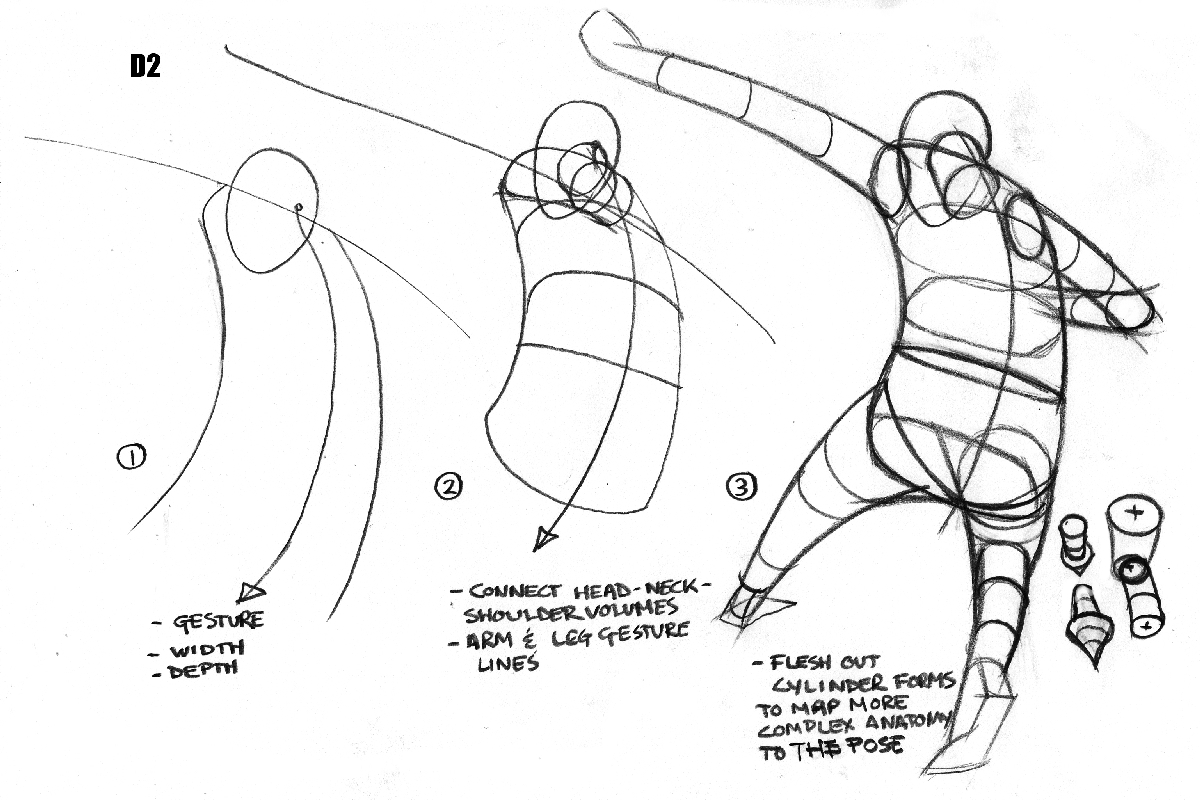 D2
①
- GESTURE
- WIDTH
- DEPTH
②
- CONNECT HEAD-NECK-
SHOULDER VOLUMES
- ARM & LEG GESTURE
LINES
③
- FLESH OUT
CYLINDER FORMS
TO MAP MORE
COMPLEX ANATOMY
TO THE POSE